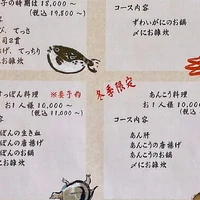 子の時期は18,000〜
(税込 19,800〜)
び、てっさ
司2貫
揚げ、てっちり
にお雑炊
コース内容
ずわいがにのお鍋
〆にお雑炊
すっぽん料理 ※要予約
お1人様 10,000〜
(税込 11,000〜)
コース内容
ぽんの生き血
ぽんの唐揚げ
ぽんのお鍋
にお雑炊
冬季限定
あんこう料理
お1人様 10,000〜
(税込 11,000〜)
コース内容
あん肝
あんこうの唐揚げ
あんこうのお鍋
〆にお雑炊